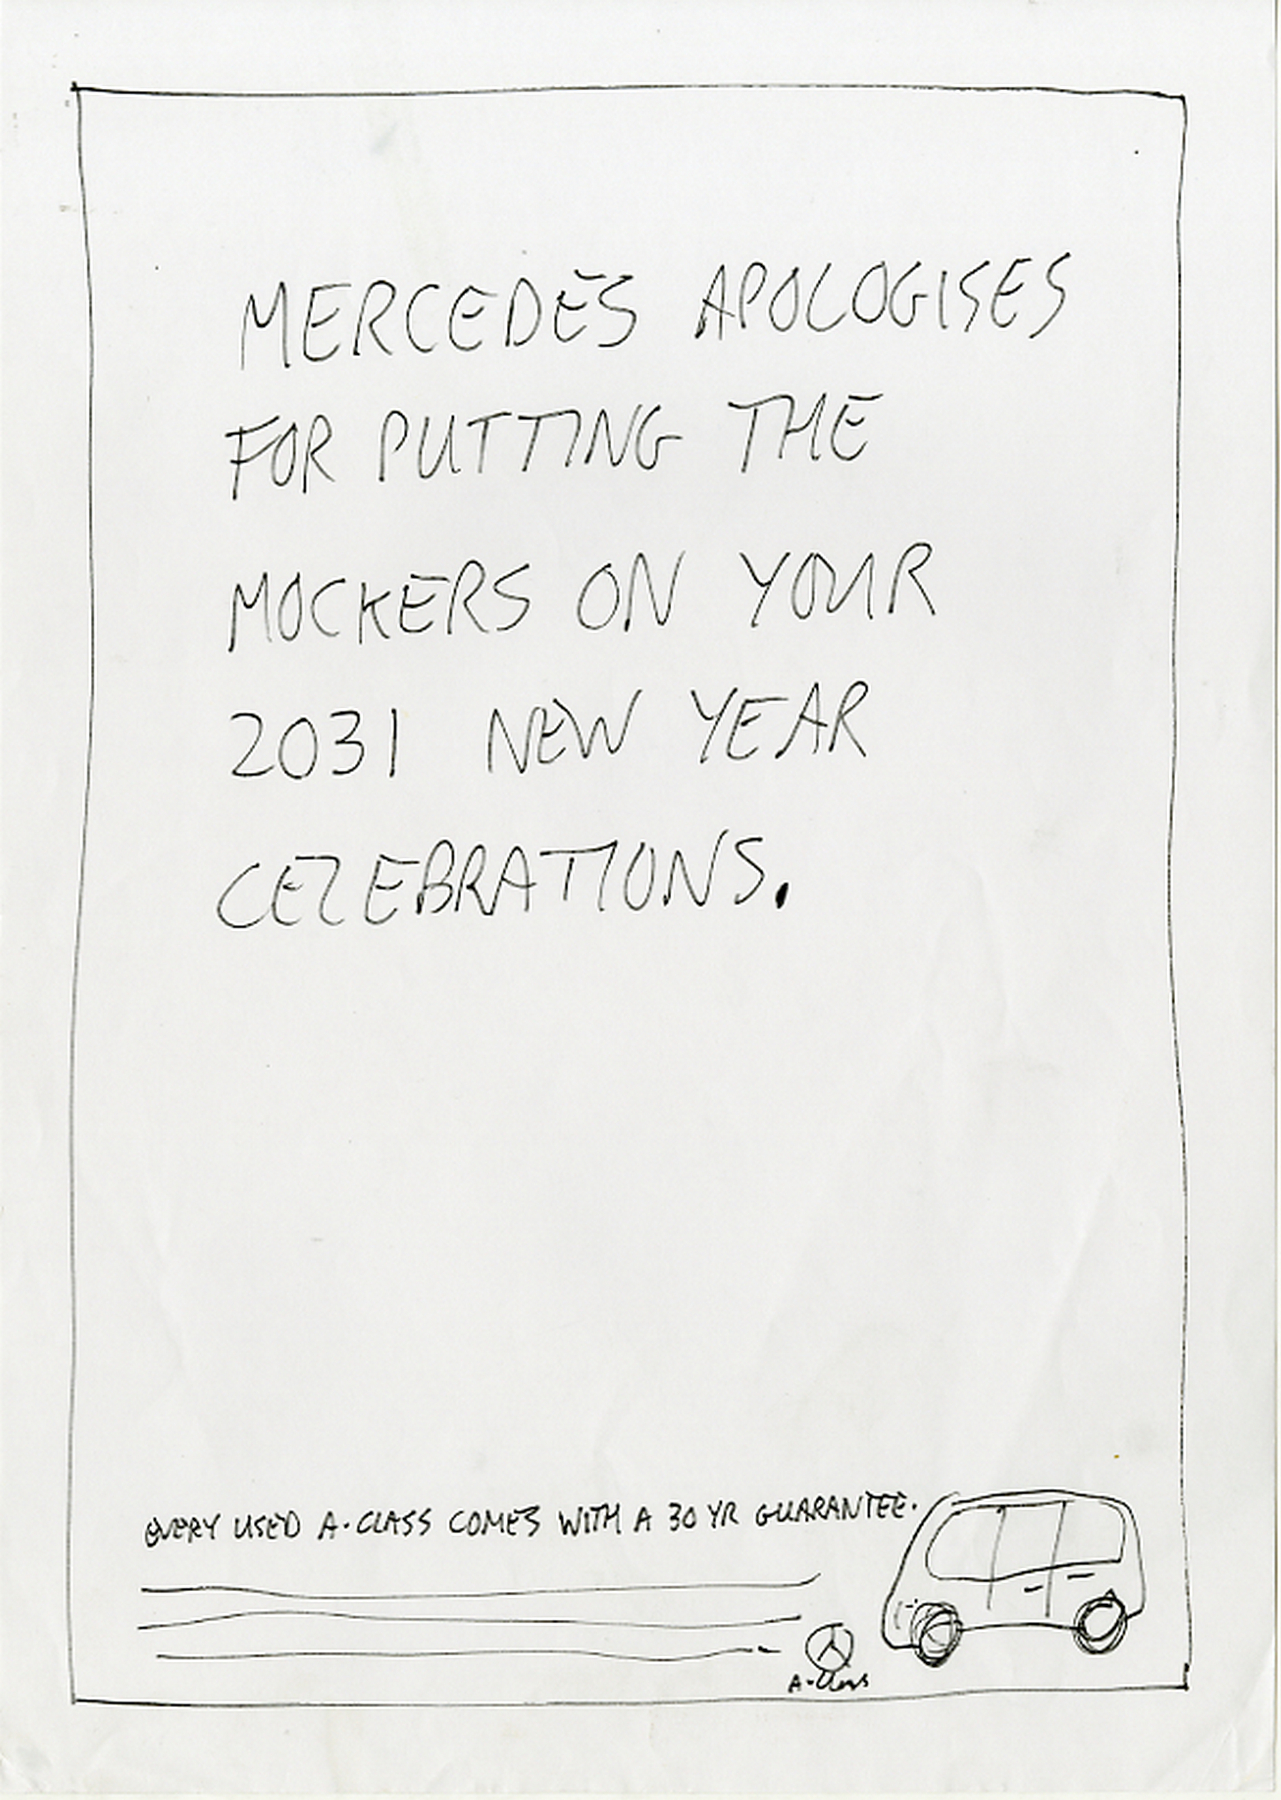 MERCEDES APOLOGISES
FOR PUTTING THE
MOCKERS ON YOUR
2031 NEW YEAR
CELEBRATIONS.
EVERY USED A-CLASS COMES WITH A 30 YR GUARANTEE.
A-Class